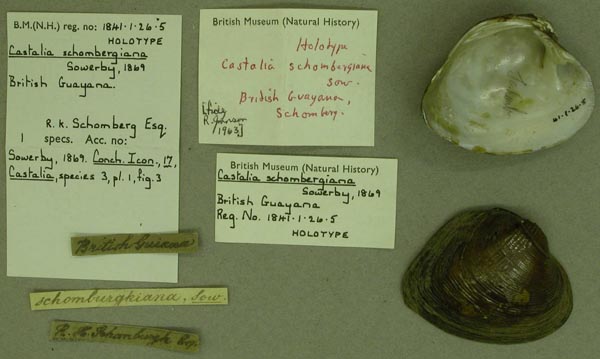 B.M.(N.H.) reg. no: 1841·1·26·5
HOLOTYPE
Castalia schombergiana
Sowerby, 1869
British Guayana.
R. K. Schomberg Esq.
1 specs. Acc. no:
Sowerby, 1869. Conch. Icon., 17,
Castalia, species 3, pl. 1, fig. 3
British Guiana
schomburgkiana. Sow.
R. H. Schomburgk Esq.
British Museum (Natural History)
Holotype
Castalia schombergiana
Sow.
British Guayana,
Schomberg.
[fide
R.
1963]
British Museum (Natural History)
Castalia schombergiana
Sowerby, 1869
British Guayana
Reg. No. 1841·1·26·5
HOLOTYPE
41·1·26·5